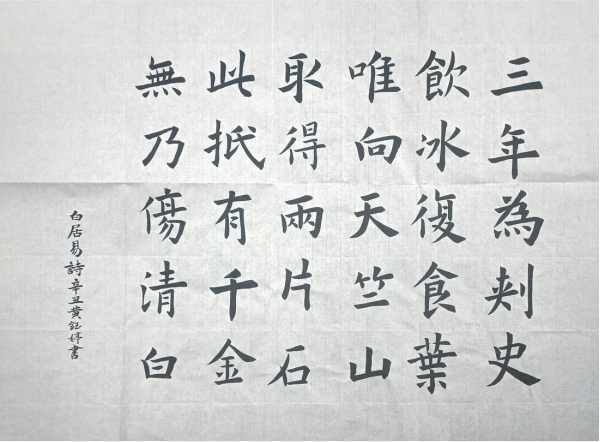 三年為刾史
飲冰復食葉
唯向天竺山
取得兩片石
此抵有千金
無乃傷清白
白居易詩辛丑黄鈺婷書